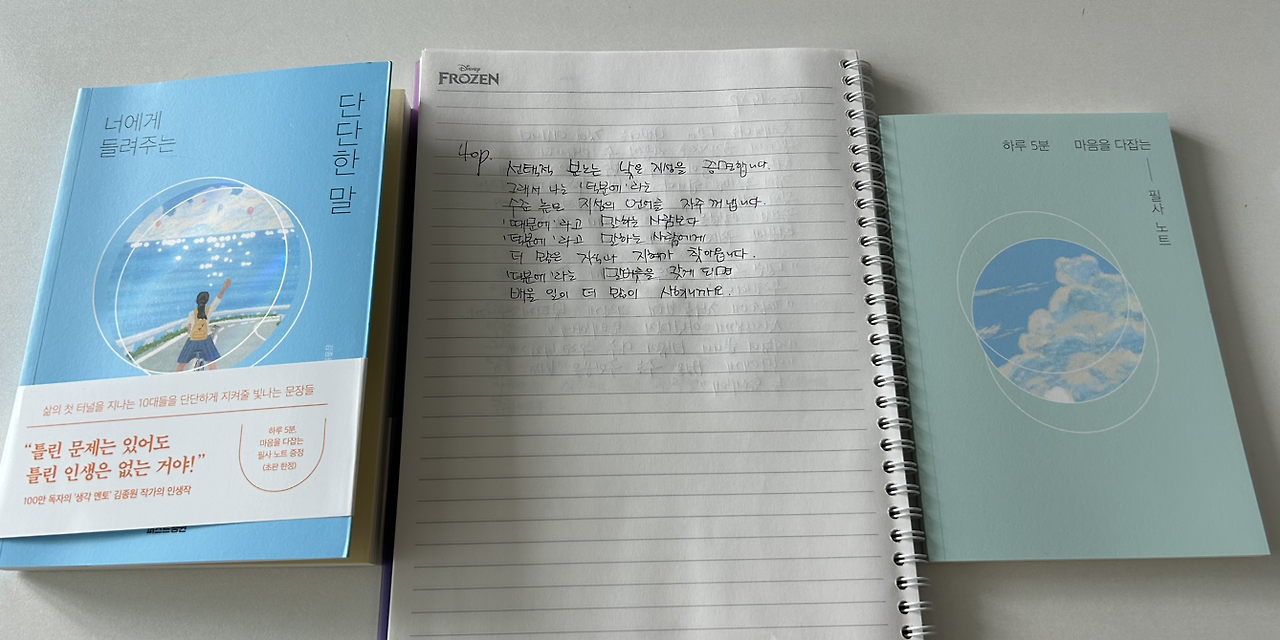 너에게
들려주는
단단한 말
삶의 첫 터널을 지나는 10대들을 단단하게 지켜줄 빛나는 문장들
“틀린 문제는 있어도
틀린 인생은 없는 거야!”
100만 독자의 ‘생각 멘토’ 김종원 작가의 인생작
하루 5분,
마음을 다잡는
필사 노트 증정
(초판 한정)
Disney
FROZEN
40p.
선택적 분노는 낮은 지성을 증명합니다.
그래서 나는 '덕분에'라는
수준 높은 지성의 언어를 자주 꺼냅니다.
'때문에'라고 말하는 사람보다
'덕분에'라고 말하는 사람에게
더 많은 지식과 지혜가 찾아옵니다.
'덕분에'라는 말버릇을 갖게 되면
배울 일이 더 많이 생기니까요.
하루 5분 마음을 다잡는
필사 노트